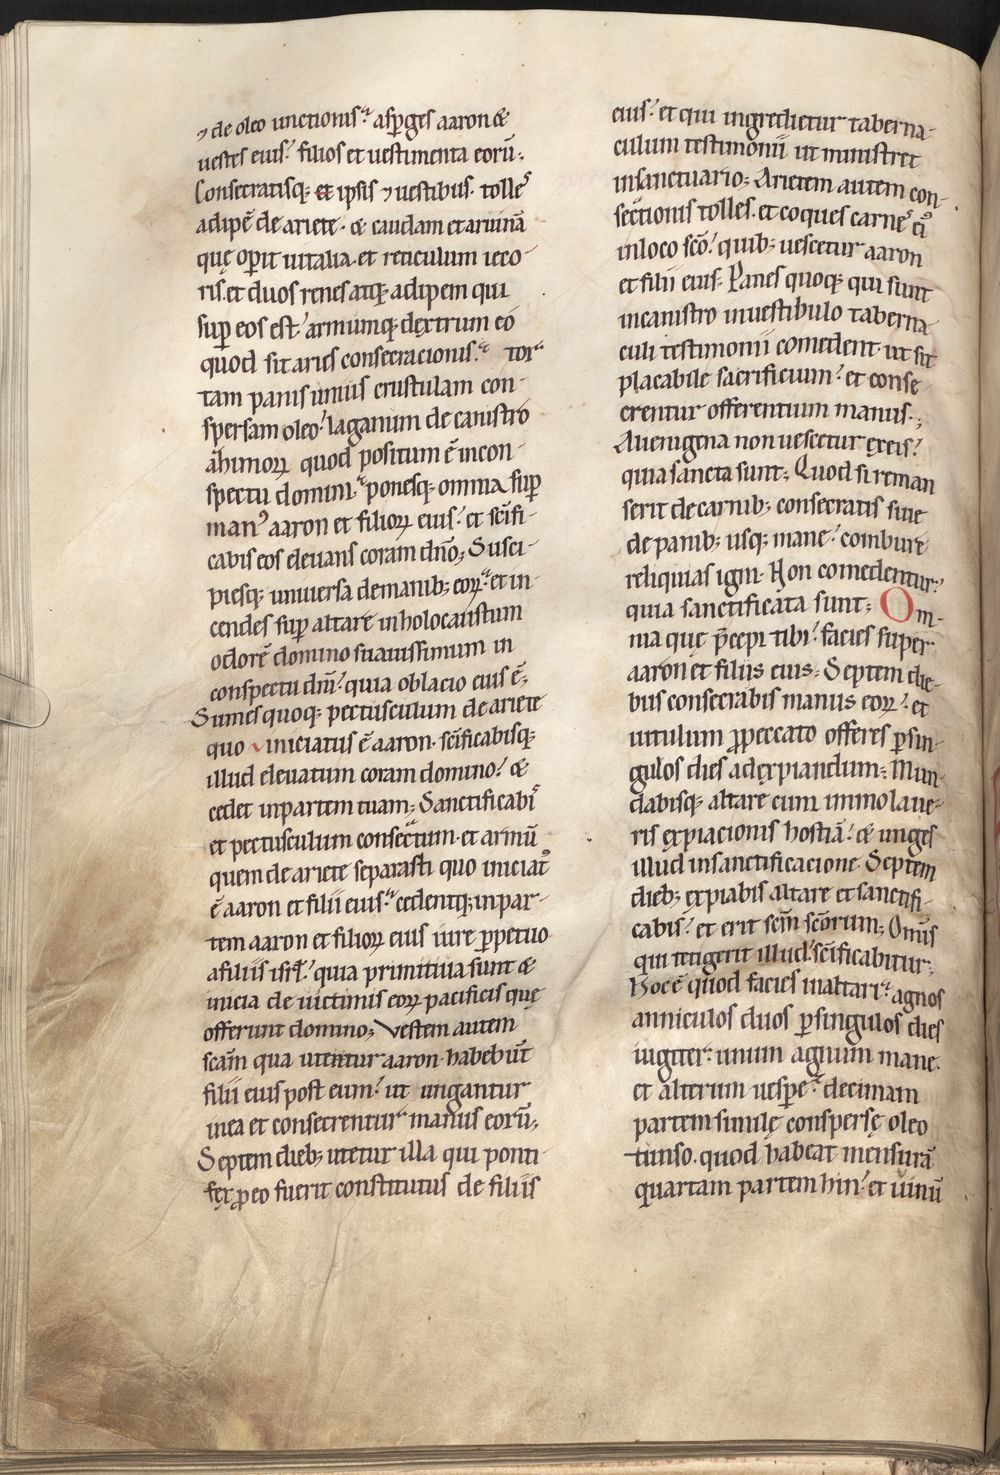 ⁊ de oleo unctionis. asꝑges aaron &
uestes eius. filios et uestimenta eorū.
Consecratisq; et ipsis ⁊ uestibus. tolles
adipē de ariete. & caudam et aruinā
quę oꝑit uitalia. et reticulum ieco-
ris. et duos renes atq; adipem qui
suꝑ eos est. armumq; dextrum eo
quod sit aries consecracionis. tor
tam panis unius crustulam con-
spersam oleo. laganum de canistro
ahimoꝝ quod positum ē in con-
spectu domini. ponesq; omnia suꝑ
manꝰ aaron et filioꝝ eius. et sc̄ifi-
cabis eos eleuans coram dn̄o; Susci-
piesq; uniuersa de manib; eoꝝ. et in-
cendes suꝑ altare in holocaustum
odorē domino suauissimum in
conspectu dn̄i. quia oblacio eius ē;
Sumes quoq; pectusculum de ariete
quo iniciatus ē aaron. sc̄ificabisq;
illud eleuatum coram domino. &
cedet in partem tuam; Sanctificabis
et pectusculum consectum. et armū
quem de ariete separasti quo iniciatꝰ
ē aaron et filii eius. cedentq; in par-
tem aaron et filioꝝ eius iure ꝑpetuo
a filiis isrl̄. quia primitiua sunt &
inicia de uictimis eoꝝ pacificis quę
offerunt domino; Vestem autem
sc̄am qua utentur aaron. habebūt
filii eius post eum. ut ungantur
in ea et consecrentur manus eorū;
Septem dieb; utetur illa qui ponti-
fex ꝓ eo fuerit constitutus de filiis
eius. et qui ingredietur taberna-
culum testimonii ut ministret
in sanctuario; Arietem autem con-
sectionis tolles. et coques carnes eiꝰ
in loco sc̄o. quib; uescetur aaron
et filii eius. Panes quoq; qui sunt
in canistro in uestibulo taberna
culi testimonii comedent. ut sit
placabile sacrificium. et conse
crentur offerentium manus;
Alienigena non uescetur ex eis.
quia sancta sunt; Quod si reman
serit de carnib; consecratis siue
de panib; usq; mane. combure
reliquias igni. Non comedentur.
quia sanctificata sunt; Om-
nia quę p̄cepi tibi. facies super
aaron et filiis eius. Septem die-
bus consecrabis manus eoꝝ. et
uitulum ꝓ peccato offeres ꝑ sin-
gulos dies ad expiandum; Mun-
dabisq; altare cum immolaue-
ris expiacionis hostiā. & unges
illud in sanctificacione. Septem
dieb; expiabis altare et sanctifi-
cabis. et erit sc̄m sc̄orum; Om̄is
qui tetigerit illud. sc̄ificabitur;
Hoc ē quod facies in altari. agnos
anniculos duos ꝑ singulos dies
iugiter. unum agnum mane.
et alterum uesꝑe. decimam
partem similę conspersę oleo
tunso. quod habeat mensurā
quartam partem hin. et uinū